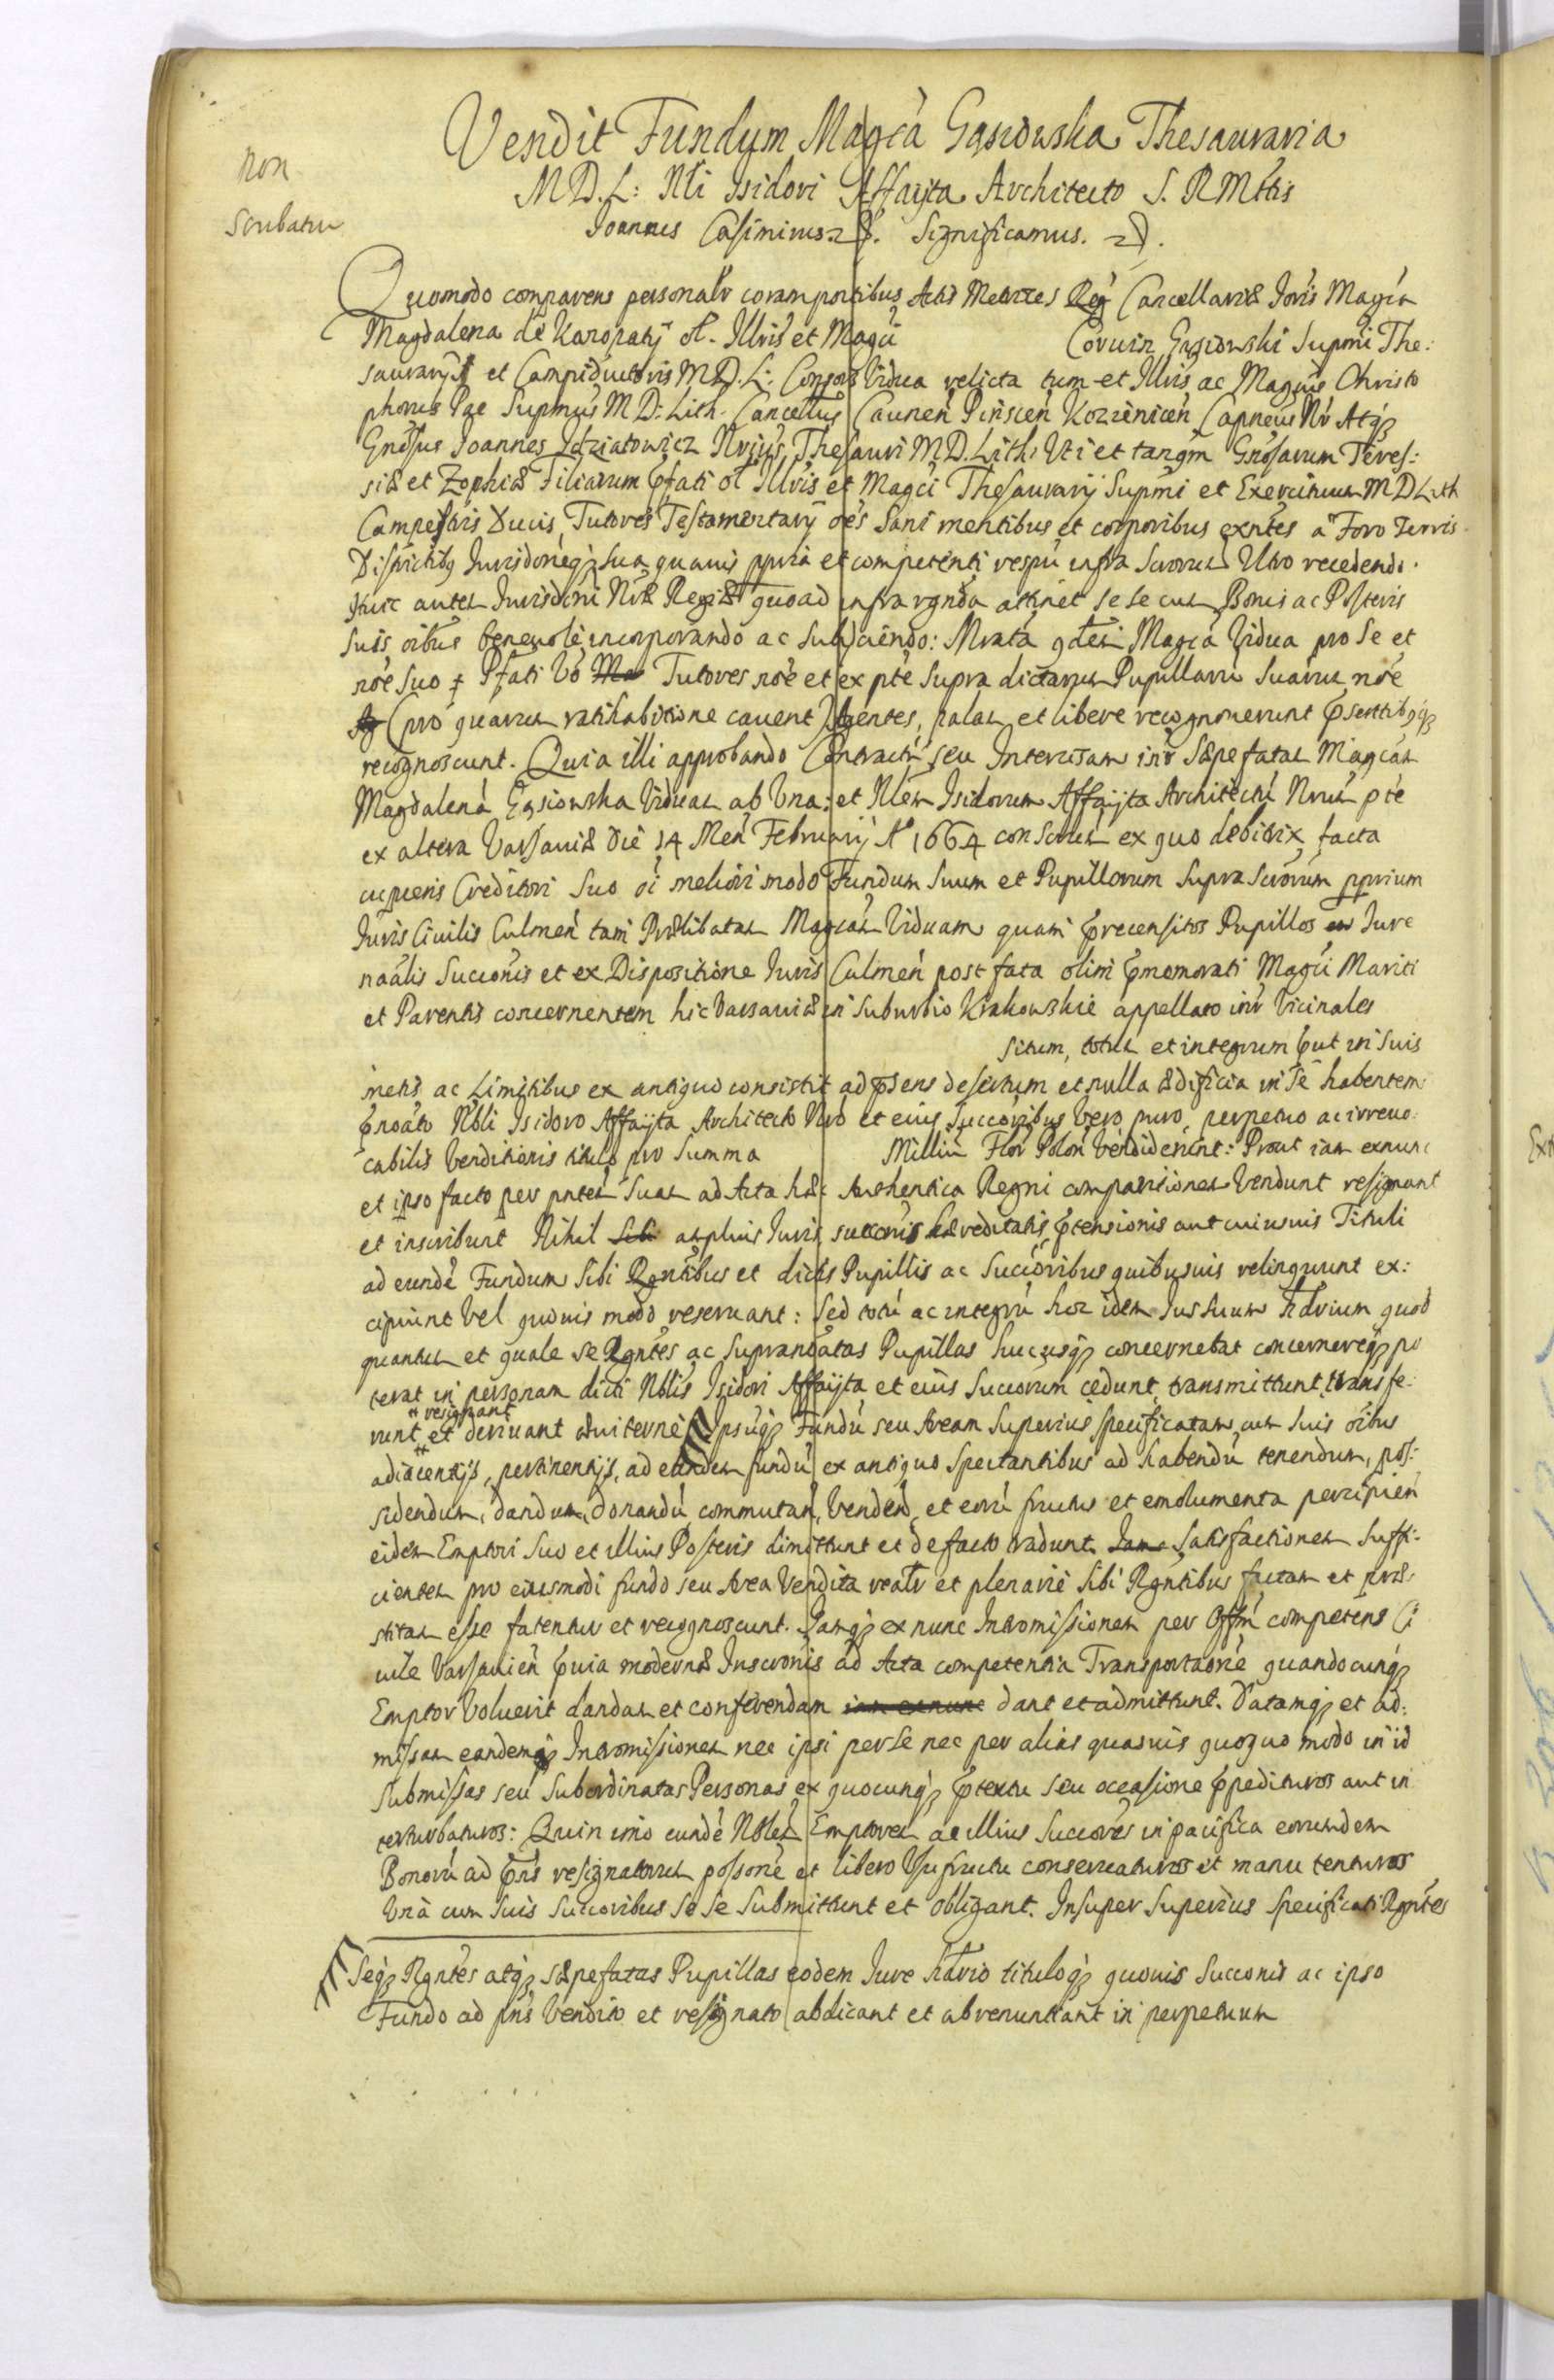 Non
Scribatur
Vendit Fundum Magca Gąsiowska Thesauraria
M D. L: Nli Isidori Affayta Architecto S. R Mttis
Joannes Casimirus. Significamus.
Quomodo comparens personalr coram portibus Actis Metrices Reg Cancellariæ Joris Magca
Magdalena de Karopatij ol. Illris et Magci Corvin Gąsiowski Supmi The:
saurarij et Campiductoris M D. L: Consors Vidua relicta tum et Illris ac Magcus Christo
phorus Pac Supmus M D: Lith. Cancellrus Caunen Pinscen Kozienicen Capneus Nr Atq
Gnosus Joannes Idziatowicz Nrius Thesauri M D. Lith. Uti et tanqm Gnosarum Teres:
siæ et Zophiæ Filiarum pfati ol Illris et Magci Thesaurarij Supmi et Exercituum M D Lith
Campestris Ducis Tutores Testamentarij oes Sani mentibus et corporibus exntes a Foro Terris
Districtibq Jurisdoneq sua quavis ppria et competenti respu infra Scrorum Utro recedendo.
Huic autem Jurisdini Nræ Regiæ quoad infra rgnda attinet sese cum Bonis ac Posteris
suis oibus benevole incorporando ac Subjiciendo: Mrata qdem Magca Vidua pro se et
noe suo Pfati Vo Ma Tutores noe et ex pte supra dictarum Pupillaru suarum noe
(pro quarum ratihabitione cavent) Agentes, palam et libere recognoverunt psenttibqq
recognoscunt. Quia illi approbando Contractu seu Intercisam intr Sæpefatam Magcam
Magdalena Gąsiowska Viduam ab Una: et Nlem Isidorum Affayta Architectu Nrum pte
ex altera Varsaviæ die 14 Men Februarij Ao 1664 conscrtum ex quo debitrix facta
cupiens Creditori suo oi meliori modo Fundum Suum et Pupillorum Supra Scrorum pprium
Juris Civilis Culmen tam Prælibatam Magcam Viduam quam precensitos Pupillos en Jure
naalis Succonis et ex Dispositione Juris Culmen post fata olim pmemorati Magci Mariti
et Parentis concernentem hic Varsaviæ in Suburbio Krakowskie appellato intr Vicinales
situm, totum et integrum put in suis
metis ac Limitibus ex antiquo consistit ad psens desertum et nulla ædificia in se habentem
pnoato Nbli Isidoro Affayta Architecto Nro et eius Succoribus Vero puro, perpetuo ac irrevo:
cabilis Venditionis titulo pro Summa Milliu Flor Polon Vendiderunt: Prout iam exnunc
et ipso facto per pntem suam ad Acta hæc Authentica Regni comparitionem Vendunt resignant
et inscribunt Nihil Sibi amplius Juris, succonis hæreditatis, ptensionis aut cuiusvis Tituli
ad eunde Fundum Sibi Rgntibus et dictis Pupillis ac Succoribus quibusuis relinquunt ex:
cipiunt Vel quovis modo reservant: Sed totu ac integru hoc idem Jus suum hdrium quod
quantum et quale se Rgntes ac Supranoatas Pupillas Succusq concernebat concernereq po
terat in personam dicti Nblis Isidori Affayta et eius Succorum cedunt, transmittunt, transfe:
resignant
runt et derivant æviterne Ipsuq Fundu seu Aream Superius specificatam cum suis oibus
adiacentijs, pertinentijs, ad eundem fundu ex antiquo Spectantibus ad habendu tenendum, pos:
sidendum, dandum, donandu commutan, venden, et eoru fructus et emolumenta percipien
eidem Emptori Suo et illius Posteris dimittunt et de facto tradunt. Iam Satisfactionem suffi:
cientem pro eiusmodi fundo seu Area Vendita realr et plenarie Sibi Rgntibus factam et præ:
stitam esse fatentur et recognoscunt. Iamq ex nunc Intromissionem per Offm competens Ci
vile Varsavien pvia modernæ Inscronis ad Acta competentia Transportaone quandocunq
Emptor Voluerit dandam et conferendam iam exnunc dant et admittunt. Datamq et ad:
missam eandemq Intromissionem nec ipsi per se nec per alias quasvis quoquo modo in id
Submissas seu Subordinatas Personas ex quocunq ptextu seu occasione pedituros aut in
terturbaturos: Quin imo eunde Nblem Emptorem ac illius Succores in pacifica eorundem
Bonoru ad pns resignatorum possone et libero Usufructu conservaturos et manu tenturos
Una cum suis Succoribus Se Se Submittunt et obligant. Insuper Superius Specificati Rgntes
Seq Rgntes atq sæpefatas Pupillas eodem Jure hdrio tituloq quovis Succonis ac ipso
Fundo ad pns Vendito et resignato abdicant et abrenuntiant in perpetuum